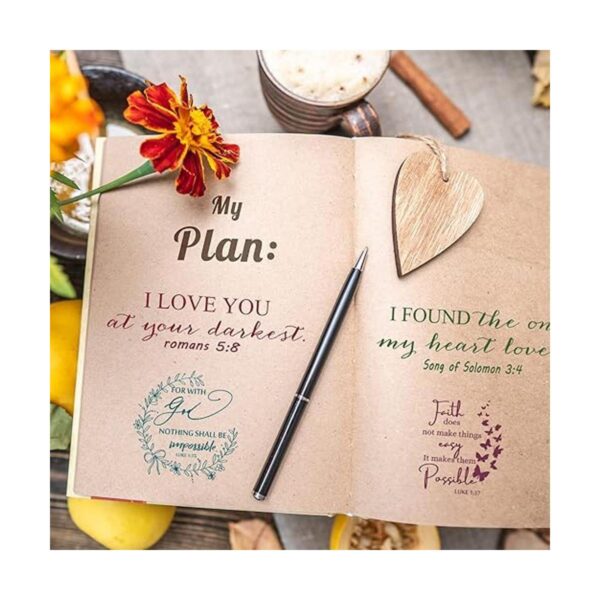 My
Plan:
I LOVE YOU
at your darkest.
romans 5:8
FOR WITH
God
NOTHING SHALL BE
impossible
LUKE 1:37
I FOUND the on
my heart love
Song of Solomon 3:4
Faith
does
not make things
easy
It makes them
Possible
LUKE 1:37